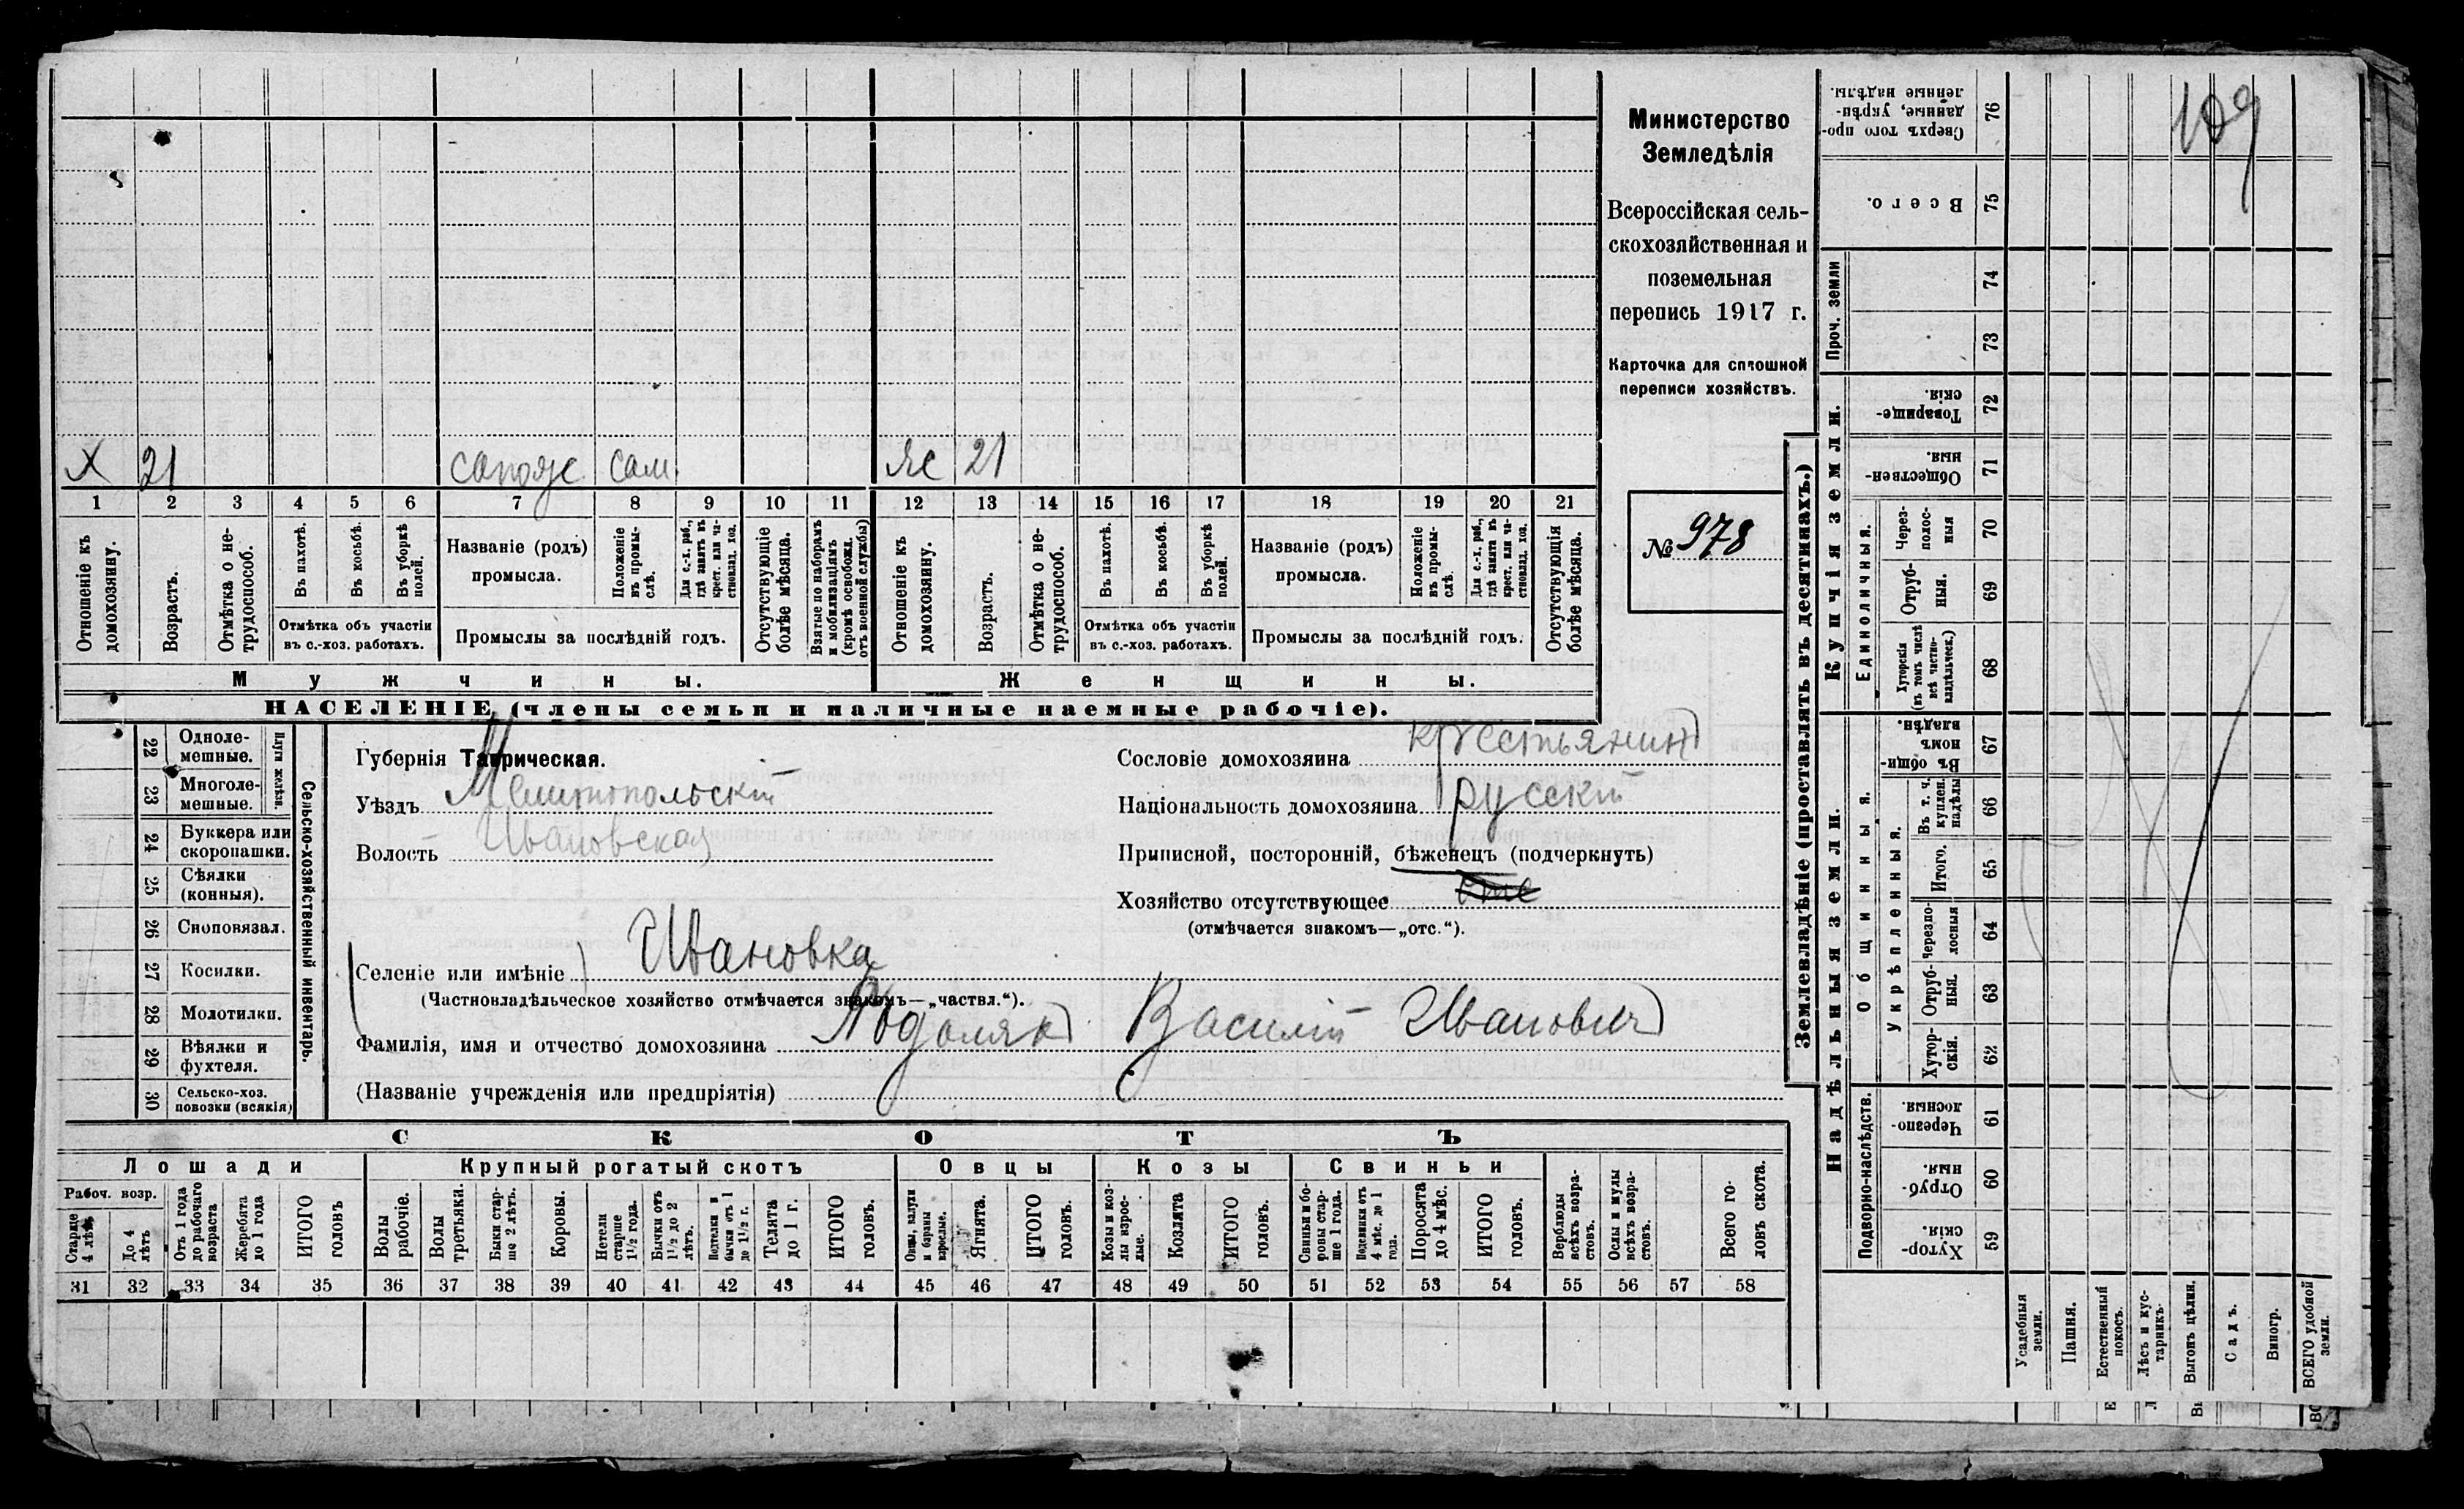 109
Министерство
Земледѣлія
Всероссійская сель-
скохозяйственная и
поземельная
перепись 1917 г.
Карточка для сплошной
переписи хозяйствъ.
№ 978
Х 21 сапож сам. Же 21
1 2 3 4 5 6 7 8 9 10 11 12 13 14 15 16 17 18 19 20 21
Отношеніе къ домохозяину.
Возрастъ.
Отмѣтка о не-трудоспособ.
Въ пахотѣ.
Въ косьбѣ.
Въ уборкѣ полей.
Отмѣтка объ участіи
въ с.-хоз. работахъ.
Названіе (родъ)
промысла.
Положеніе въ промы-слѣ.
Для с.-х. раб., гдѣ занятъ въ крест. или ча-стновлад. хоз.
Промыслы за послѣдній годъ.
Отсутствующіе болѣе мѣсяца.
Взятые по наборамъ и мобилизаціямъ (кромѣ освобожд. отъ военной службы)
Отношеніе къ домохозяину.
Возрастъ.
Отмѣтка о не-трудоспособ.
Въ пахотѣ.
Въ косьбѣ.
Въ уборкѣ полей.
Отмѣтка объ участіи
въ с.-хоз. работахъ.
Названіе (родъ)
промысла.
Положеніе въ промы-слѣ.
Для с.-х. раб., гдѣ занята въ крест. или ча-стновлад. хоз.
Промыслы за послѣдній годъ.
Отсутствующія болѣе мѣсяца.
Мужчины.
Женщины.
НАСЕЛЕНІЕ (члены семьи и наличные наемные рабочіе).
22 Однолемешные.
23 Многолемешные.
Плуги желѣзн.
24 Буккера или скоропашки.
25 Сѣялки (конныя).
26 Сноповязал.
27 Косилки.
28 Молотилки.
29 Вѣялки и фухтеля.
30 Сельско-хоз. повозки (всякія)
Сельско-хозяйственный инвентарь.
Губернія Таврическая.
Уѣздъ Мелитопольскій
Волость Ивановская
Сословіе домохозяина крестьянин
Національность домохозяина русскій
Приписной, посторонній, бѣженецъ (подчеркнуть)
Хозяйство отсутствующее отс
(отмѣчается знакомъ—„отс.“).
Селеніе или имѣніе Ивановка
(Частновладѣльческое хозяйство отмѣчается знакомъ—„частвл.“).
Фамилія, имя и отчество домохозяина Подоляк Василій Иванович
(Названіе учрежденія или предпріятія)
СКОТЪ
Лошади Крупный рогатый скотъ Овцы Козы Свиньи
Рабоч. возр.
Старше 4 лѣтъ
До 4 лѣтъ
Отъ 1 года до рабочаго возраста
Жеребята до 1 года
ИТОГО головъ
Волы рабочіе.
Волы третьяки.
Быки стар-ше 2 лѣтъ.
Коровы.
Нетели старше 1½ года.
Бычки отъ 1½ до 2 лѣтъ.
Подтелки и бычки отъ 1 до 1½ г.
Телята до 1 г.
ИТОГО головъ.
Овцы, валухи и бараны взрослые.
Ягнята.
ИТОГО головъ.
Козы и коз-лы взрос-лые.
Козлята
ИТОГО головъ.
Свиньи и бо-ровы стар-ше 1 года.
Подсвинки отъ 4 мѣс. до 1 года.
Поросята до 4 мѣс.
ИТОГО головъ.
Верблюды всѣхъ возра-стовъ.
Ослы и мулы всѣхъ возра-стовъ.
Всего го-ловъ скота.
31 32 33 34 35 36 37 38 39 40 41 42 43 44 45 46 47 48 49 50 51 52 53 54 55 56 57 58
Землевладѣніе (проставлять въ десятинахъ.)
Надѣльныя земли.
Купчія земли.
Проч. земли
Подворно-наслѣдств.
Общинныя.
Укрѣпленныя.
Единоличныя.
Хутор-скія. 59
Отруб-ныя. 60
Черезпо-лосныя. 61
Хутор-скія. 62
Отруб-ныя. 63
Черезпо-лосныя 64
Итого. 65
Въ т. ч. куплен. надѣлы 66
Въ общи-номъ владѣн. 67
Хуторскія (въ томъ числѣ всѣ частно-владѣльческ.) 68
Отруб-ныя. 69
Черезполос-ныя 70
Обществен-ныя. 71
Товарище-скія. 72
73
74
Всего. 75
Сверхъ того про-данные, укрѣп-ленные надѣлы. 76
Усадебныя земли.
Пашня.
Естественный покосъ.
Лѣсъ и кус-тарникъ.
Выгонъ цѣлин.
Садъ.
Виногр.
ВСЕГО удобной земли.